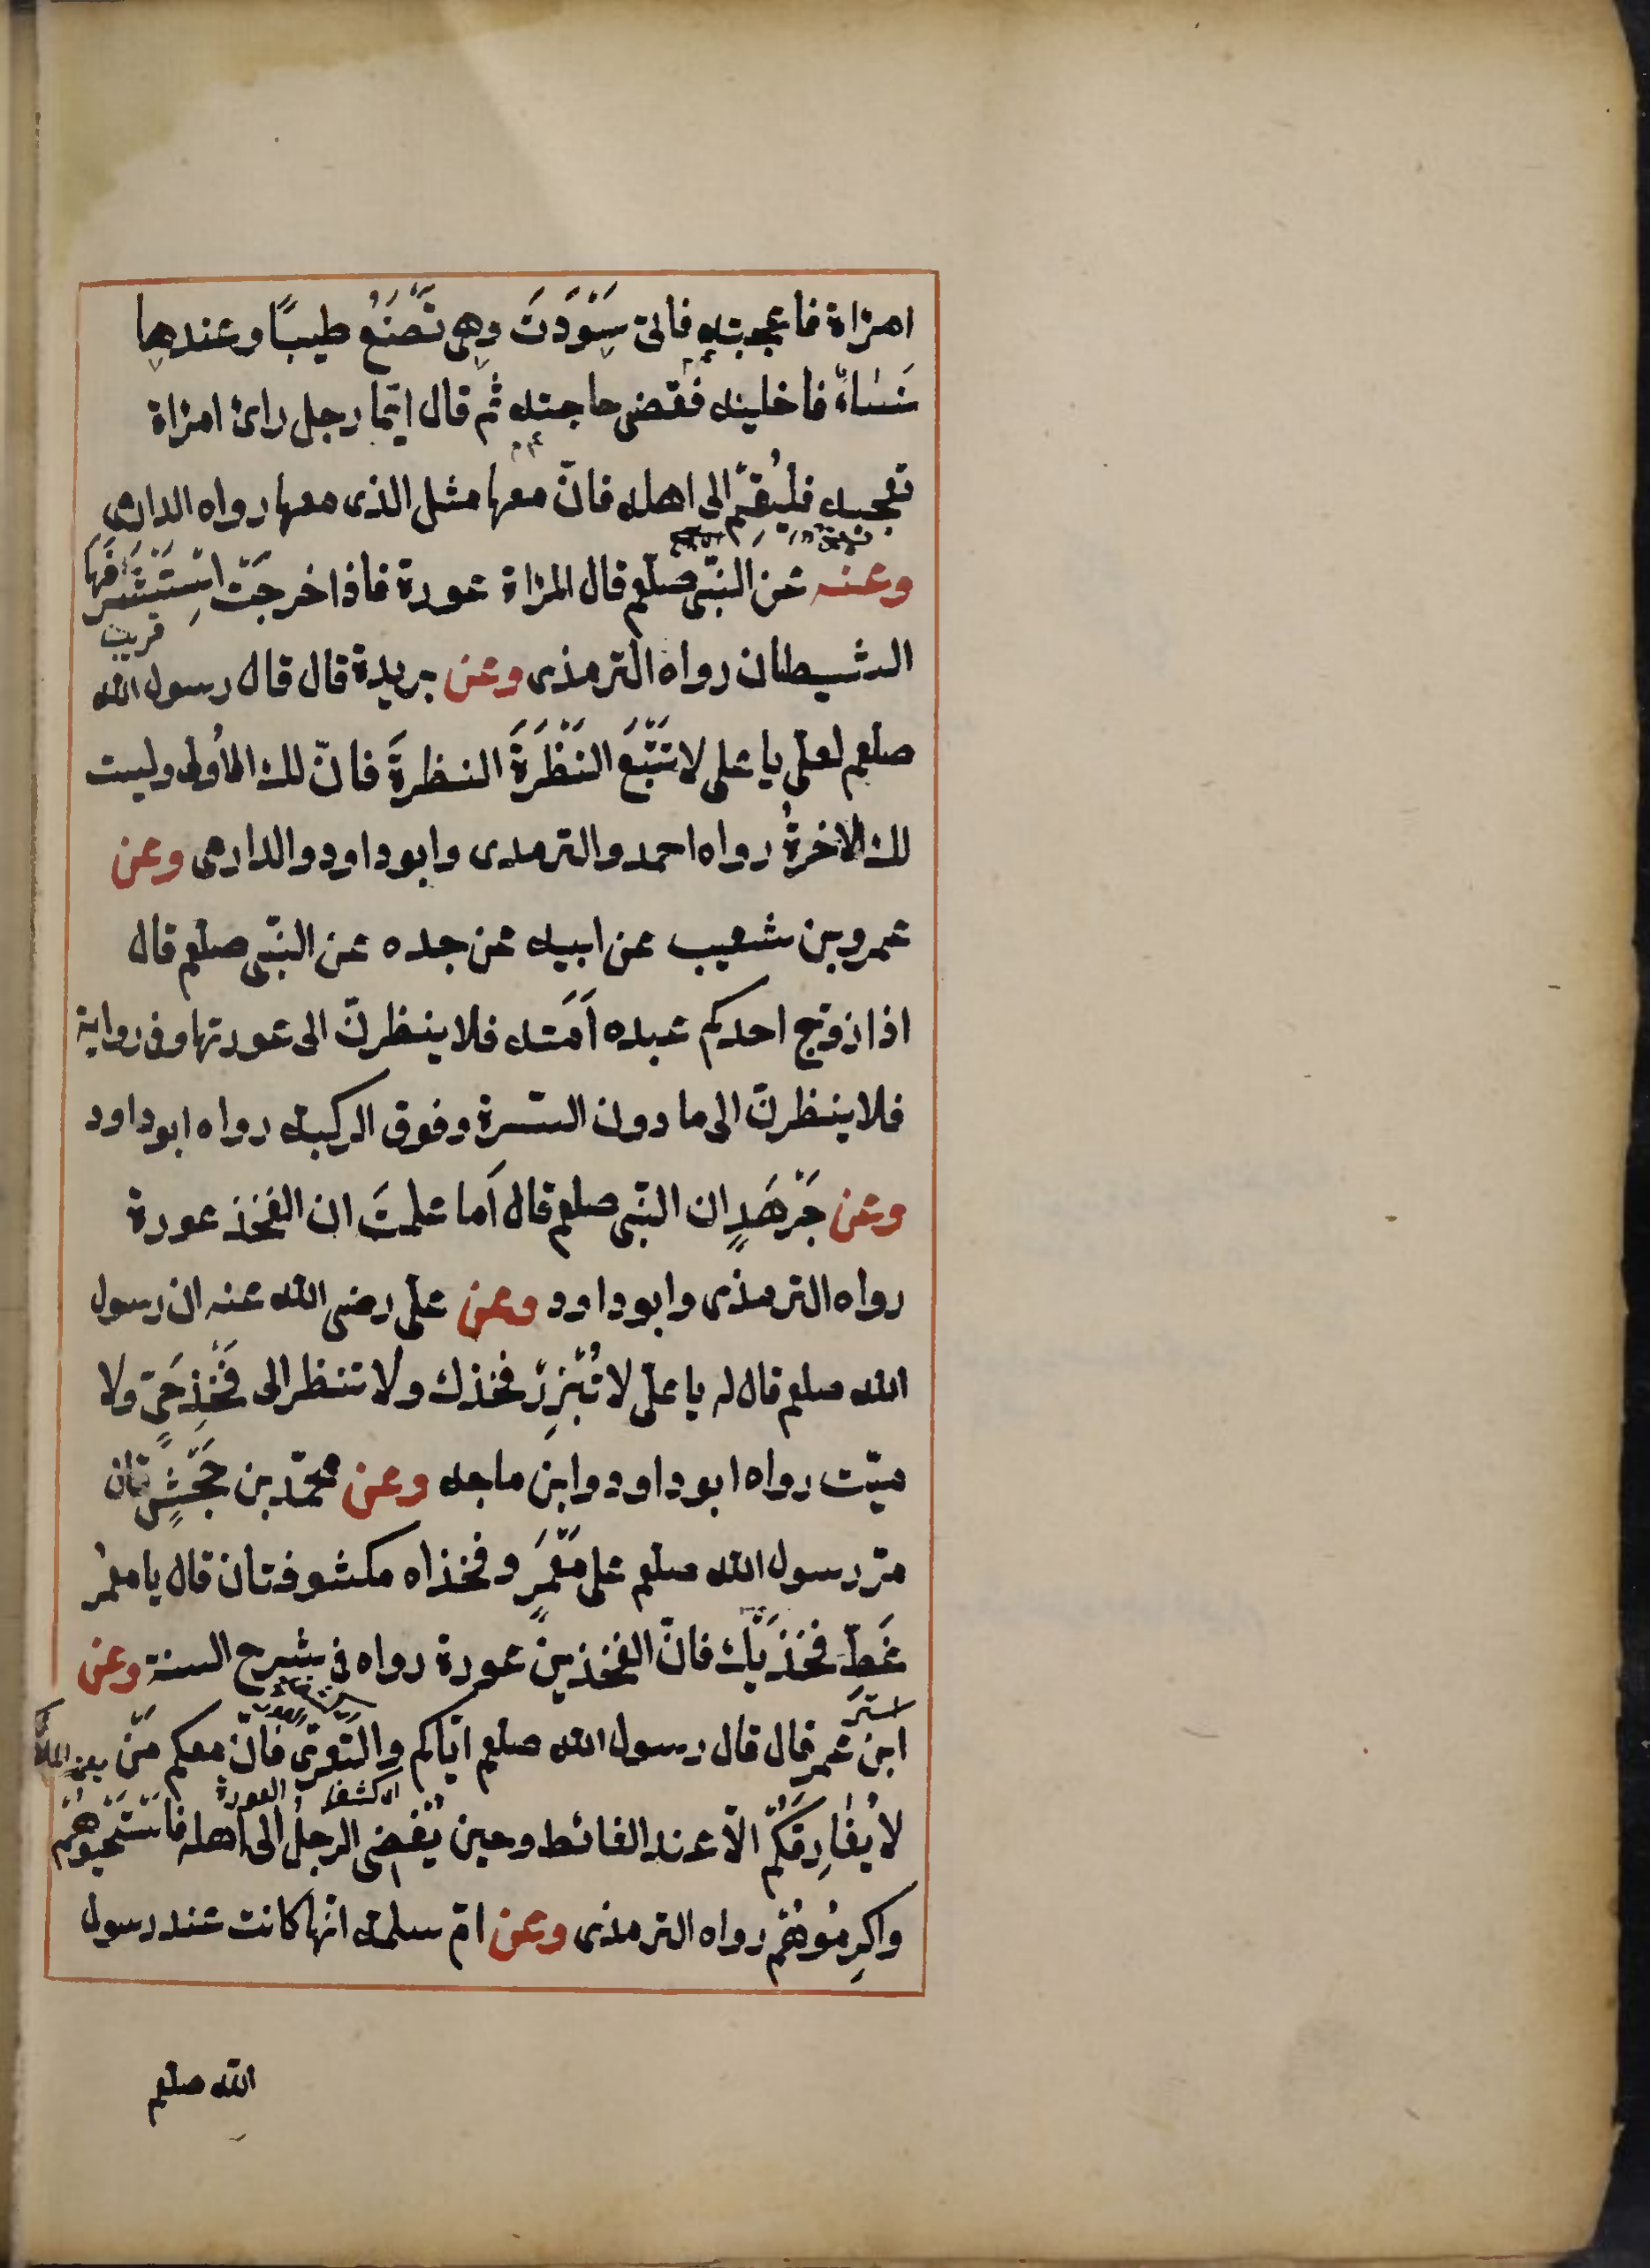 امراة فاعجبته فاتى سَوْدَتَ وهى تَصْنَعُ طيبًا وعندها
نساءٌ فاخلينه فقضى حاجته ثم قال ايّما رجل رائ امراة
تعجبه فليقم الى اهله فانّ معها مثل الذى معها رواه الدارمى
وعنه عن النبّى صلعم قال المراة عورة فاذا خرجَتْ اسْتَشْرَفَهَا
قريب
الشيطان رواه الترمذى وعن بريدة قال قال رسول الله
صلعم لعلى يا على لا تتّبع النَظْرَةَ النظرةَ فانّ لك الاُولى وليست
لك الاخرةُ رواه احمد والترمدى وابو داود والدارمى وعن
عمرو بن شعيب عن ابيه عن جده عن النبّى صلعم قال
اذا زوّج احدكم عبده اَمَته فلا ينظرنّ الى عورتها وفى رواية
فلا ينظرنّ الى ما دون السّرة وفوق الركبة رواه ابو داود
وعن جَرْهَدٍ ان النبّى صلعم قال اَما علمتَ ان الفخذ عورة
رواه الترمذى وابو داود وعن علىّ رضى الله عنه ان رسول
الله صلعم قال له يا علىّ لا تُبْرِزْ فخذك ولا تنظر الى فَخْذِ حَىٍّ ولا
ميّت رواه ابو داود وابن ماجه وعن محمّد بن جَحْشٍ قال
مرّ رسول الله صلعم على مَعْمَرٍ وفخذاه مكشوفتان قال يا معمر
غَطِّ فخذَيْك فانّ الفخذين عورة رواه فى شرح السنة وعن
استر
ابن عمر قال قال رسول الله صلعم ايّاكم والتّعرّى فانّ معكم مَنْ
اى كشف العورة
لا يُفارِقُكُم الاّ عند الغائط وحين يُفْضِى الرجلُ الى اهله فاسْتَحْيُوهُمْ
واكرِمُوهُمْ رواه الترمذى وعن امّ سلمة انّها كانت عند رسول
الله صلعم